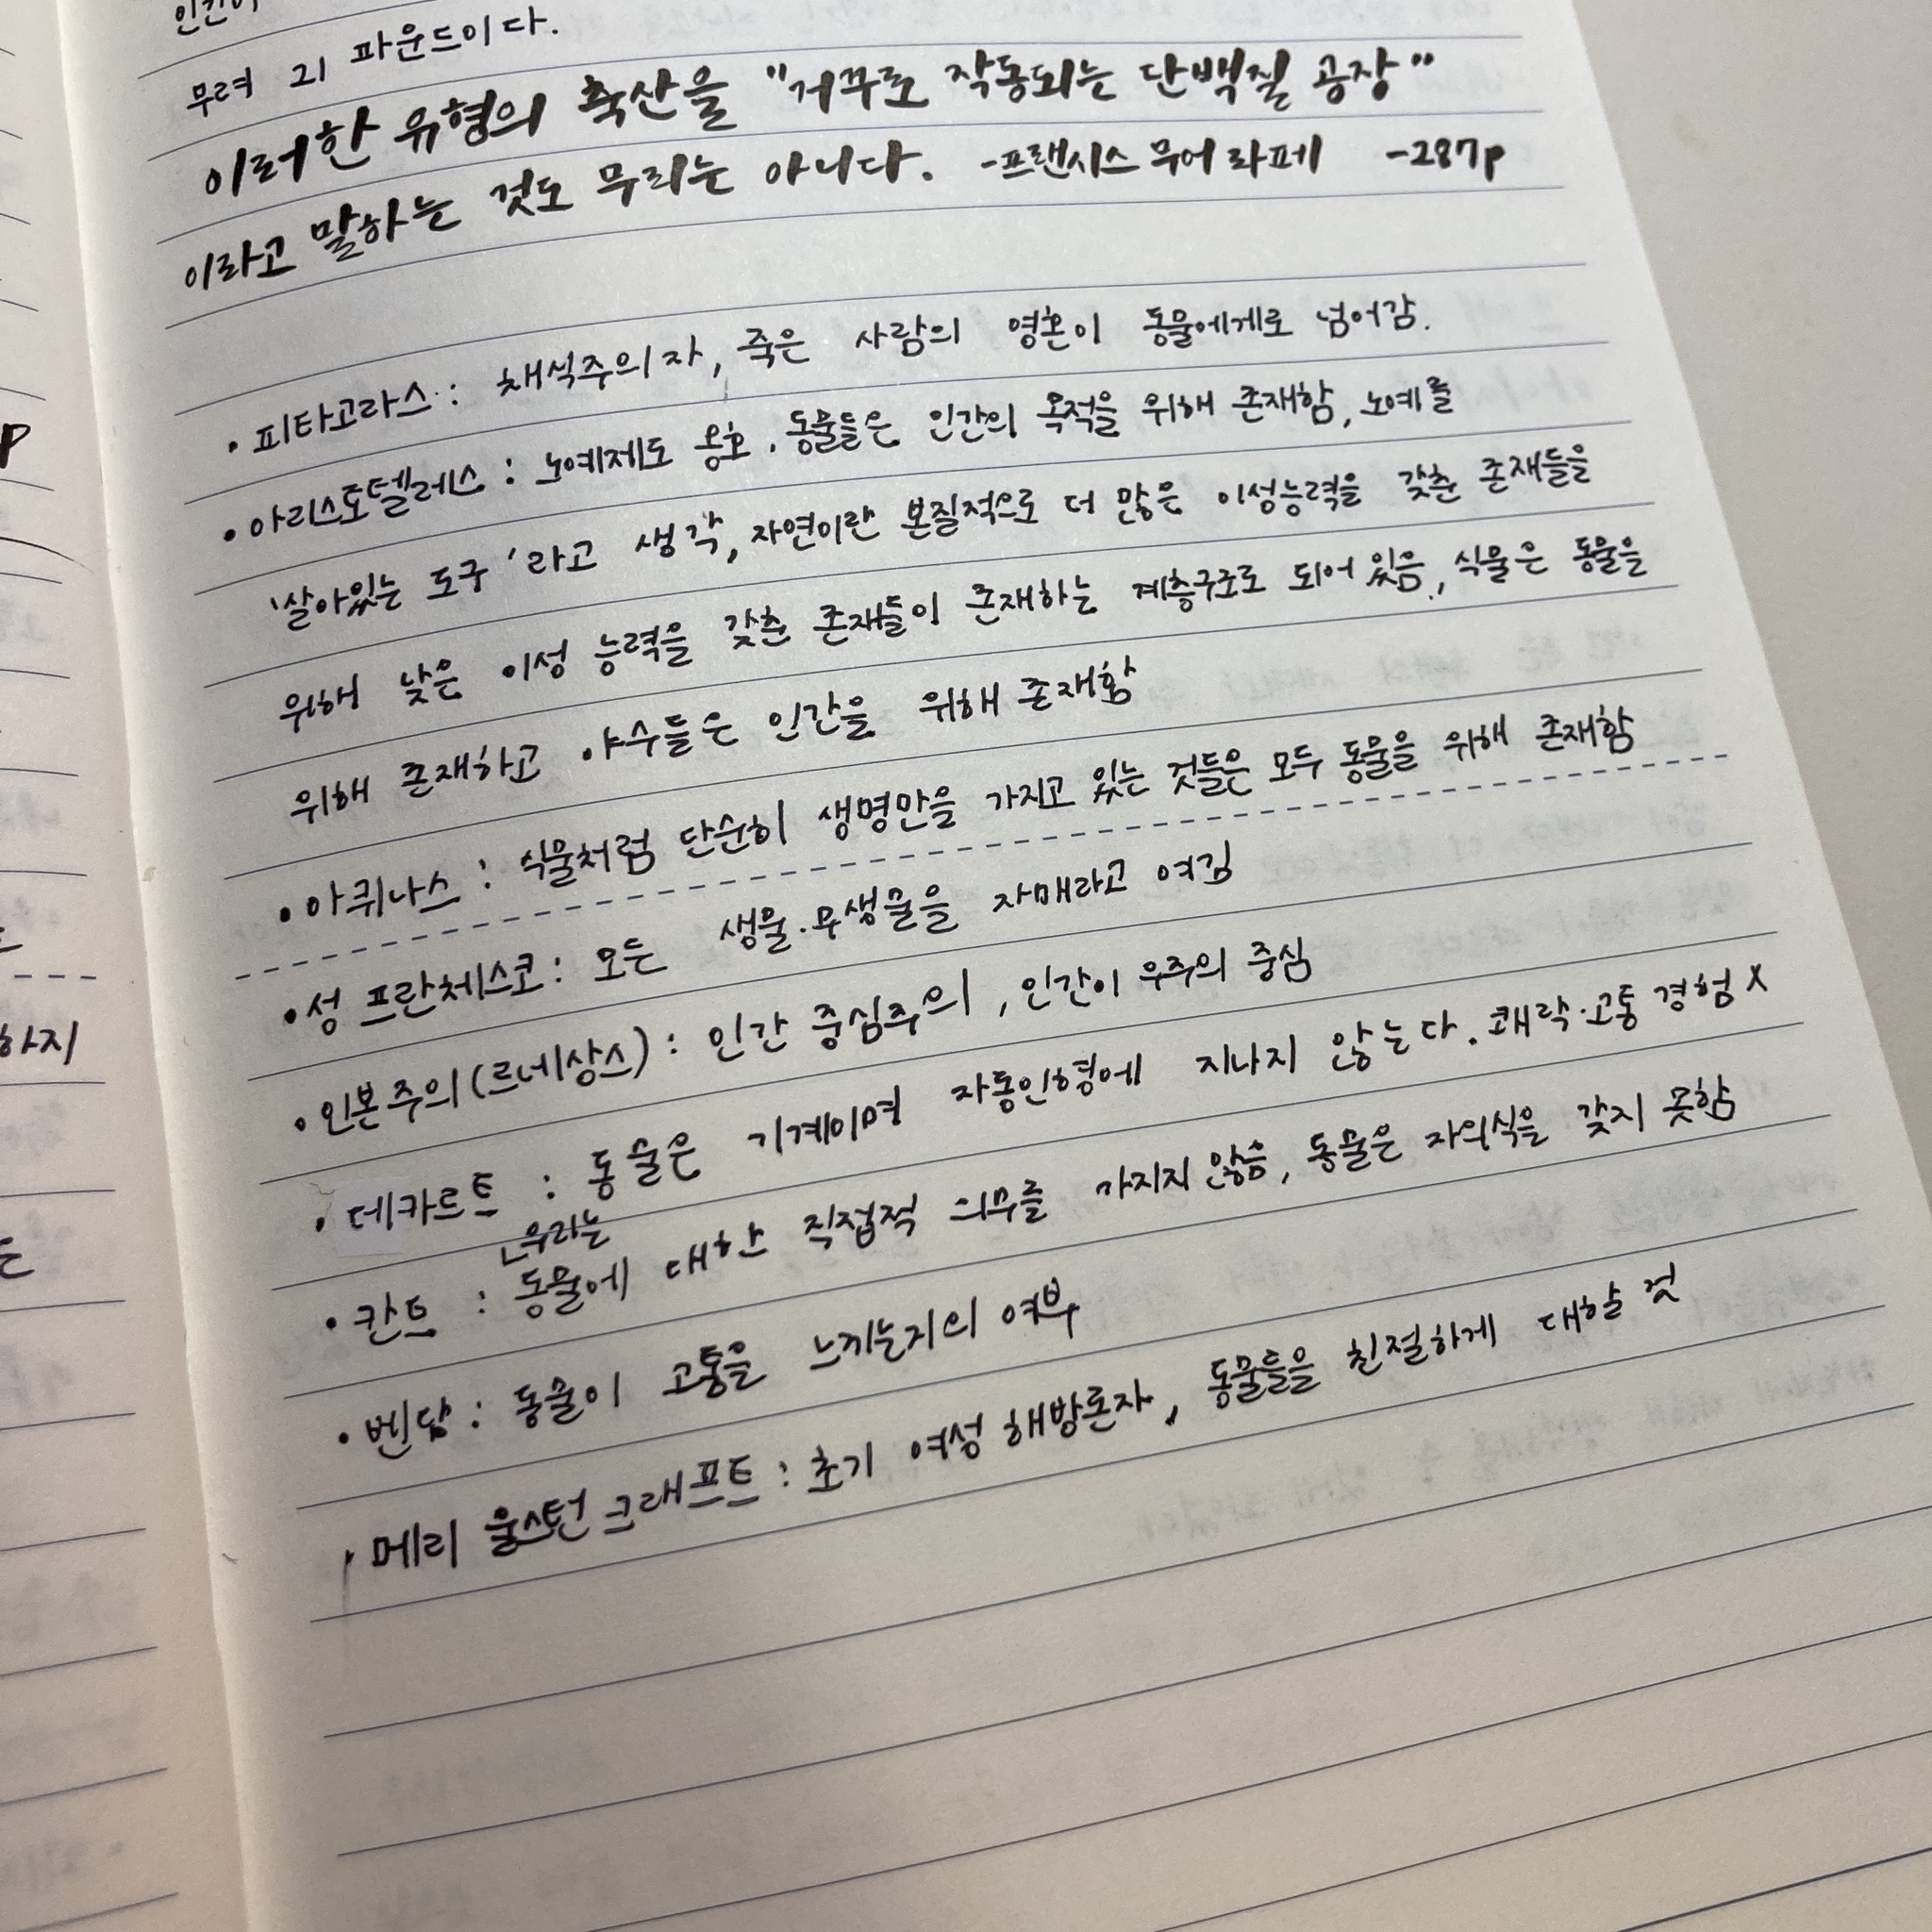 무려 21 파운드이다.
이러한 유형의 축산을 "거꾸로 작동되는 단백질 공장"
이라고 말하는 것도 무리는 아니다. -프랜시스 무어 라페 -287p
• 피타고라스 : 채식주의자, 죽은 사람의 영혼이 동물에게로 넘어감.
• 아리스토텔레스 : 노예제도 옹호. 동물들은 인간의 목적을 위해 존재함, 노예를
'살아있는 도구'라고 생각, 자연이란 본질적으로 더 많은 이성능력을 갖춘 존재들을
위해 낮은 이성 능력을 갖춘 존재들이 존재하는 계층구조로 되어 있음, 식물은 동물을
위해 존재하고 야수들은 인간을 위해 존재함
• 아퀴나스 : 식물처럼 단순히 생명만을 가지고 있는 것들은 모두 동물을 위해 존재함
• 성 프란체스코 : 모든 생물·무생물을 자매라고 여김
• 인본주의(르네상스) : 인간 중심주의, 인간이 우주의 중심
• 데카르트 : 동물은 기계이며 자동인형에 지나지 않는다. 쾌락·고통 경험 X
우리는
• 칸트 : 동물에 대한 직접적 의무를 가지지 않음, 동물은 자의식을 갖지 못함
• 벤담 : 동물이 고통을 느끼는지의 여부
• 메리 울스턴크래프트 : 초기 여성 해방론자, 동물들을 친절하게 대할 것
하지